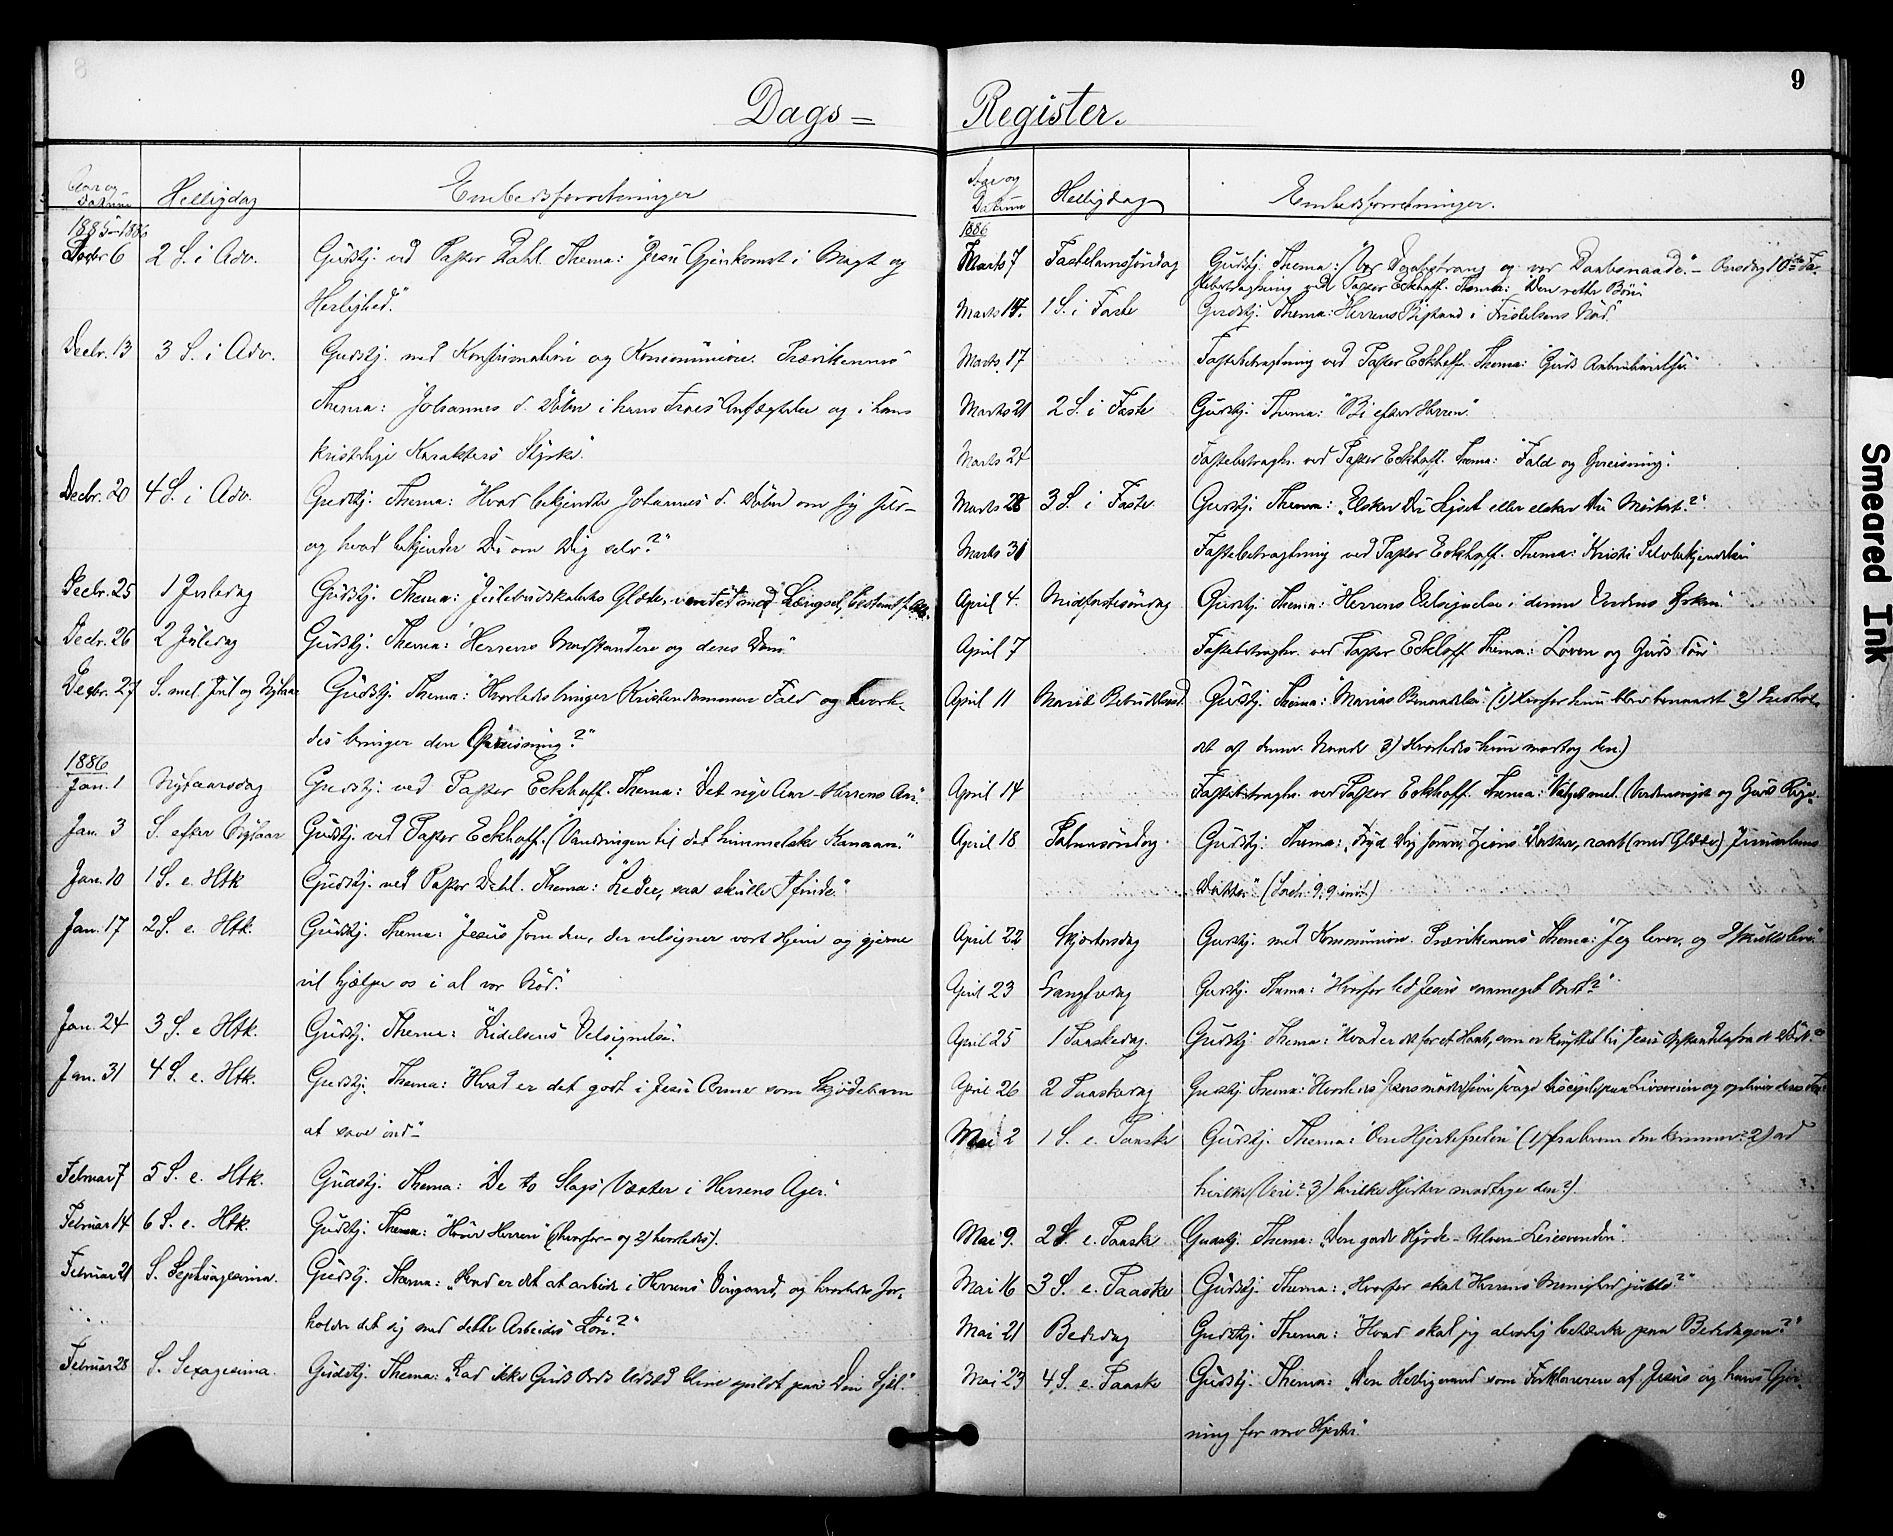 8
Dags=
Aar og Datum Helligdag Embedsforretninger
1885-1886
Decbr 6 2 S. i Adv. Gudstj. ved Pastor Dahl. Thema: "Jesu Gjenkomst i Magt og
Herlighed."
Decbr. 13 3 S. i Adv. Gudstj. med Konfirmation og Kommunion. Prædikenens
Thema: "Johannes d. Døber i hans Troes Anfægtelse og i hans
kristelige Karakters Styrke."
Decbr. 20 4 S. i Adv. Gudstj. Thema: "Hvad bekjendte Johannes d. Døber om sig selv –
og hvad bekjender Du om Dig selv?"
Decbr. 25 1 Juledag Gudstj. Thema: "Julebudskabets Glæde, ventet med Længsel, bestemt f. Alle."
Decbr. 26 2 Juledag Gudstj. Thema: "Herrens Modstandere og deres Dom"
Decbr. 27 S. mel. Jul og Nytaar Gudstj. Thema: "Hvorledes bringer Kristendommen Fald og hvorle-
des bringer den Opreisning?"
1886
Jan. 1 Nytaarsdag Gudstj. ved Pastor Eckhoff. Thema: "Det nye Aar – Herrens Aar."
Jan. 3 S. efter Nytaar Gudstj. ved Pastor Eckhoff. (Vandringen til det himmelske Kanaan."
Jan. 10 1 S. e. Htk Gudstj. ved Pastor Dahl. Thema: "Leder, saa skulle I finde."
Jan. 17 2 S. e. Htk. Gudstj. Thema: "Jesus som den, der velsigner vort Hjem og gjerne
vil hjælpe os i al vor Nød."
Jan. 24 3 S. e Htk. Gudstj. Thema: "Lidelsens Velsignelse."
Jan. 31 4 S. e. Htk. Gudstj. Thema: "Hvad er det godt i Jesu Arme som Skjødebarn
at sove ind –"
Februar 7 5 S. e. Htk. Gudstj. Thema: "De to Slags Væxter i Herrens Ager."
Februar 14 6 S. e. Htk. Gudstj. Thema: "Hører Herren" (1) hvorfor – og 2) hvorledes).
Februar 21 S. Septuagesima. Gudstj. Thema: "Hvad er det at arbeide i Herrens Viingaard, og hvorledes for-
holder det sig med dette Arbeides Løn?"
Februar 28 S. Sexagesima. Gudstj. Thema: "Lad ikke Guds Ords Udsæd blive spildt paa Din Sjæl."
9
Register.
Aar og Datum Helligdag Embedsforretninger.
1886
Marts 7 Fastelavnssøndag Gudstj. Thema: "Vor Daabstrang og vor Daabsnaade." – Onsdag 10de Fa-
stebetragtning ved Pastor Eckhoff. Thema: "Den rette Bøn"
Marts 14. 1 S. i Faste Gudstj. Thema: "Herrens Bistand i Fristelsens Nød."
Marts 17 Fastebetragtning ved Pastor Eckhoff. Thema: "Guds
Marts 21 2 S. i Faste Gudstj. Thema: "Bi efter Herren".
Marts 24 Fastebetragtn. ved Pastor Eckhoff. Thema: "Fald og Opreisning."
Marts 28 3 S. i Faste Gudstj. Thema: "Elsker Du Lyset eller elsker Du Mørket?"
Marts 31 Fastebetragtning ved Pastor Eckhoff. Thema: "Kristi Selvbekjendelse"
April 4. Midfastesøndag Gudstj. Thema: "Herrens Velsignelse i denne Verdens Ørken."
April 7 Fastebetragtn. ved Pastor Eckhoff Thema: "Loven og Guds Søn"
April 11 Mariæ Budskabsd. Gudstj. Thema: "Marias Benaadelse" (1) Hvorfor hun blev benaadet 2)
det af denne Naade 3) Hvorledes hun modtog den.)
April 14 Fastebetragtn. ved Pastor Eckhoff. Thema: "Valget mel. Verdensriget og Guds Rige."
April 18 Palmesøndag. Gudstj. Thema: "Fryd Dig saare, Zions Datter, raab (med Glæde) Jerusalems
Datter." (Sach. 9,9 init.)
April 22 Skjærtorsdag Gudstj. med Kommunion. Prædikenens Thema: "Jeg lever, og I skulle leve."
April 23 Langfredag Gudstj. Thema: "Hvorfor led Jesus saameget Ondt?"
April 25 1 Paaskedag. Gudstj. Thema: "Hvad er det for et Haab, som er knyttet til Jesu Opstandelse fra de Døde?"
April 26 2 Paaskedag Gudstj. Thema: "Hvorledes Jesus møder sine svage Disciple paa Livsveien og opliver deres Tro"
Mai 2 1 S. e. Paaske Gudstj. Thema: "Om Hjertefreden" (1) fra hvem den kommer? 2) ad
hvilke Veie? 3) hvilke Hjerter modtage den?).
Mai 9. 2 S. e. Paaske Gudstj. Thema: "Den gode Hyrde – Ulven – Leiesvenden".
Mai 16 3 S. e. Paaske Gudstj. Thema: "Hvorfor skal Herrens Menighed juble?"
Mai 21 Bededag Gudstj. Thema: "Hvad skal jeg alvorlig betænke paa Bededagen?"
Mai 23 4 S. e. Paaske Gudstj. Thema: "Den Helligaand som Forklareren af Jesus og hans Gjer-
ning for vore Hjerter."
Smeared Ink